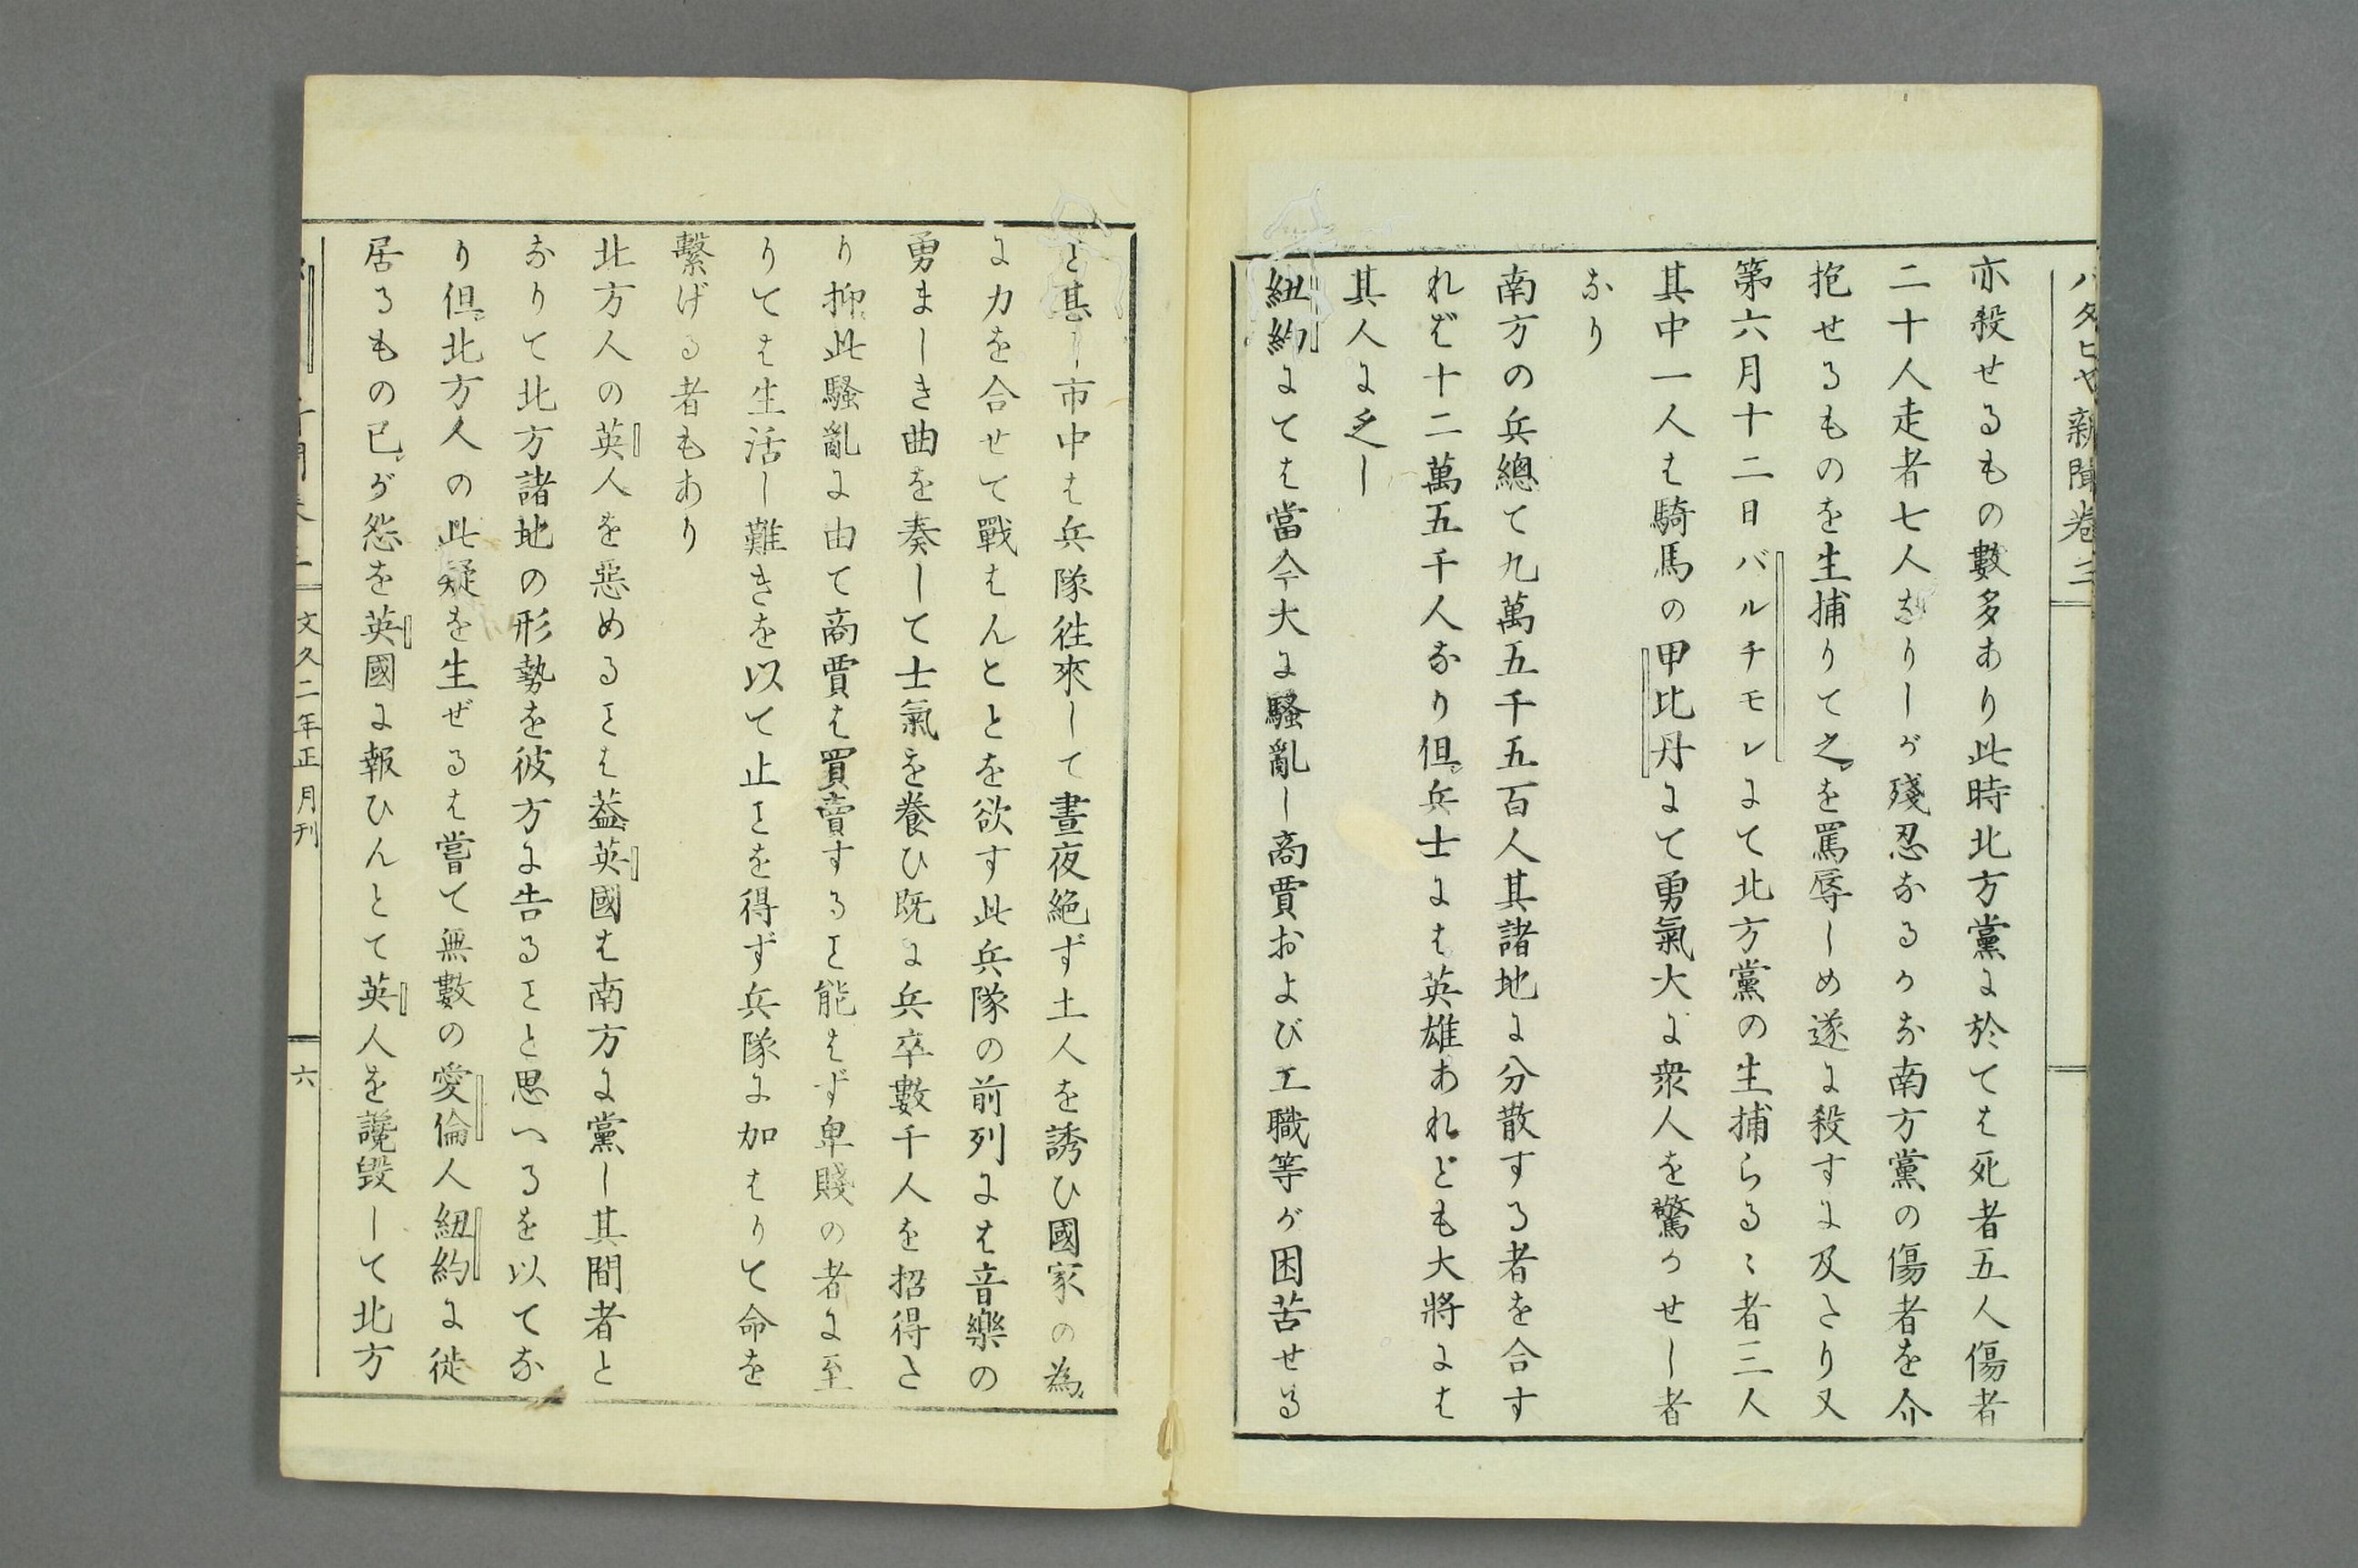 バタヒヤ新聞卷二
亦殺せるもの數多あり此時北方黨に於ては死者五人傷者
二十人走者七人なりしが殘忍なるかな南方黨の傷者を介
抱せるものを生捕りて之を罵辱しめ遂に殺すに及たり又
第六月十二日バルチモレにて北方黨の生捕らるゝ者三人
其中一人は騎馬の甲比丹にて勇氣大に衆人を驚かせし者
なり
南方の兵總て九萬五千五百人其諸地に分散する者を合す
れば十二萬五千人なり但兵士には英雄あれども大將には
其人に乏し
紐約にては當今大に騷亂し商賈および工職等が困苦せる
と甚し市中は兵隊往來して晝夜絶ず土人を誘ひ國家の為
に力を合せて戰はんとヿを欲す此兵隊の前列には音樂の
勇ましき曲を奏して士氣を養ひ既に兵卒數千人を招得た
り抑此騷亂に由て商賈は買賣するヿ能はず卑賤の者に至
りては生活し難きを以て止ヿを得ず兵隊に加はりて命を
繫げる者もあり
北方人の英人を惡めるヿは葢英國は南方に黨し其間者と
なりて北方諸地の形勢を彼方に告るヿと思へるを以てな
り但北方人の此疑を生ぜるは嘗て無數の愛倫人紐約に徙
居るもの已が怨を英國に報ひんとて英人を讒毀して北方
文久二年正月刊
六